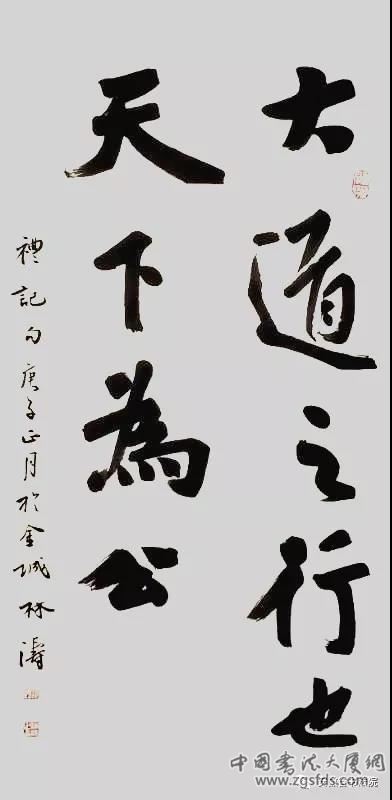 大道之行也
天下為公
禮記句庚子正月於金城林濤
中国书法大厦網
www.zgsfds.com